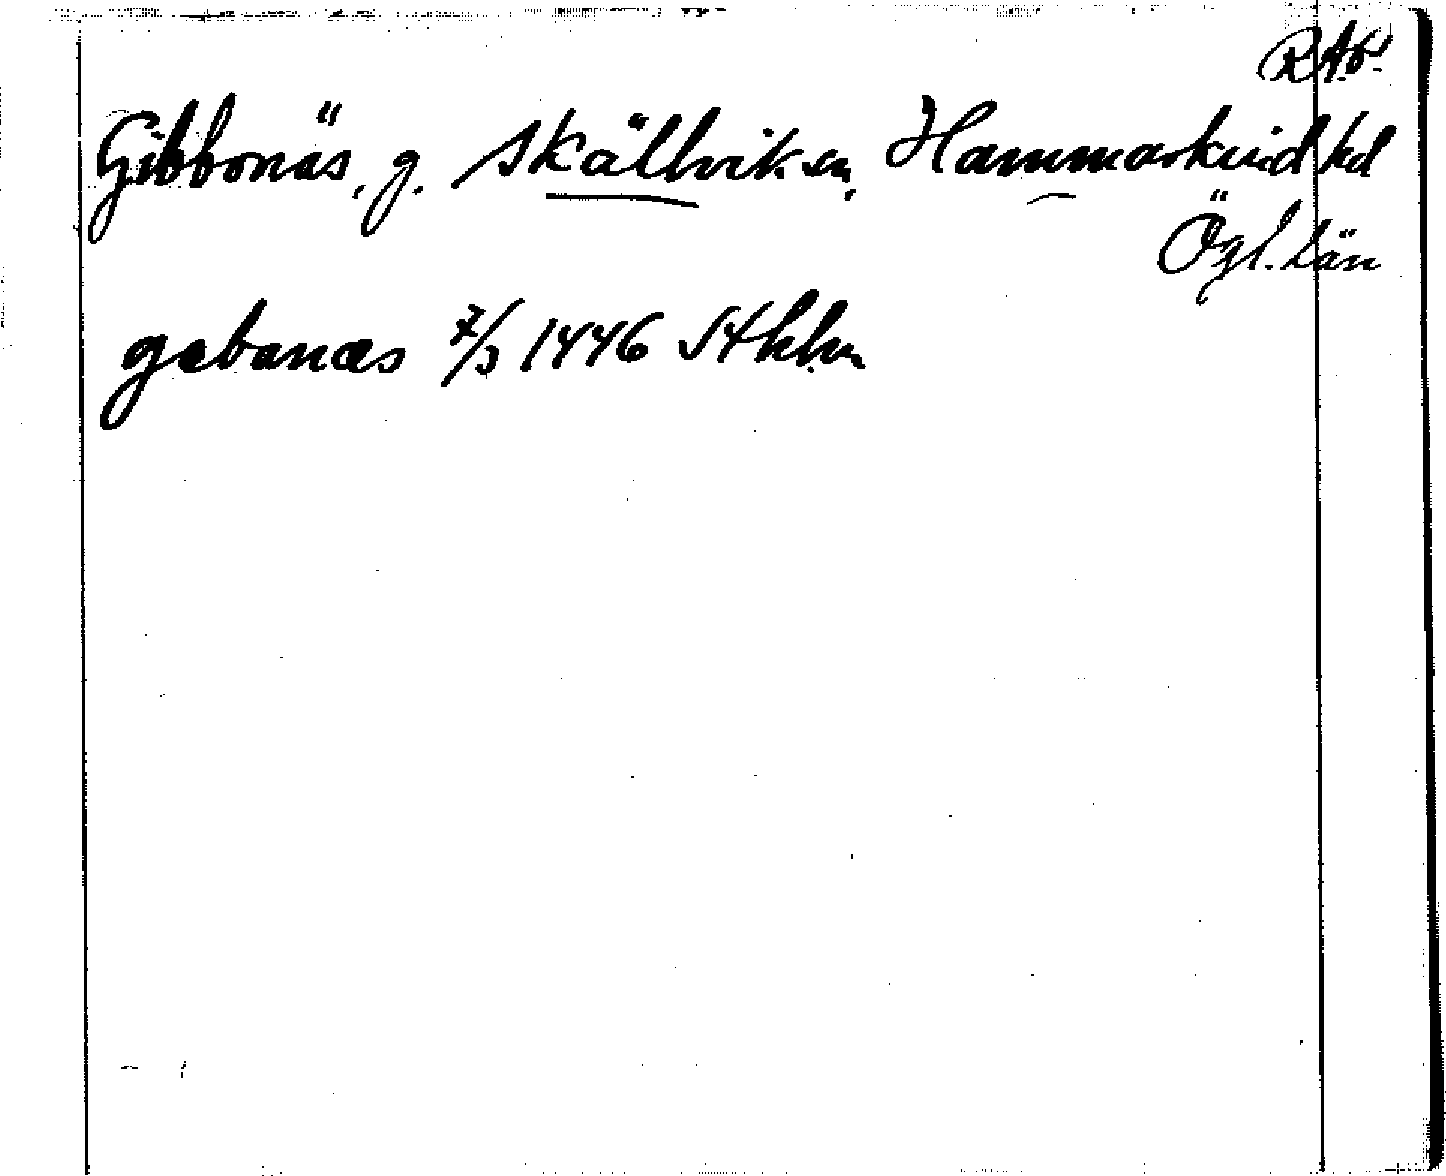 RAp.
Gibbonäs, g. Skällvik sn, Hammarkind hd
Ögl. län
gebonæs 7/3 1446 Sthlm